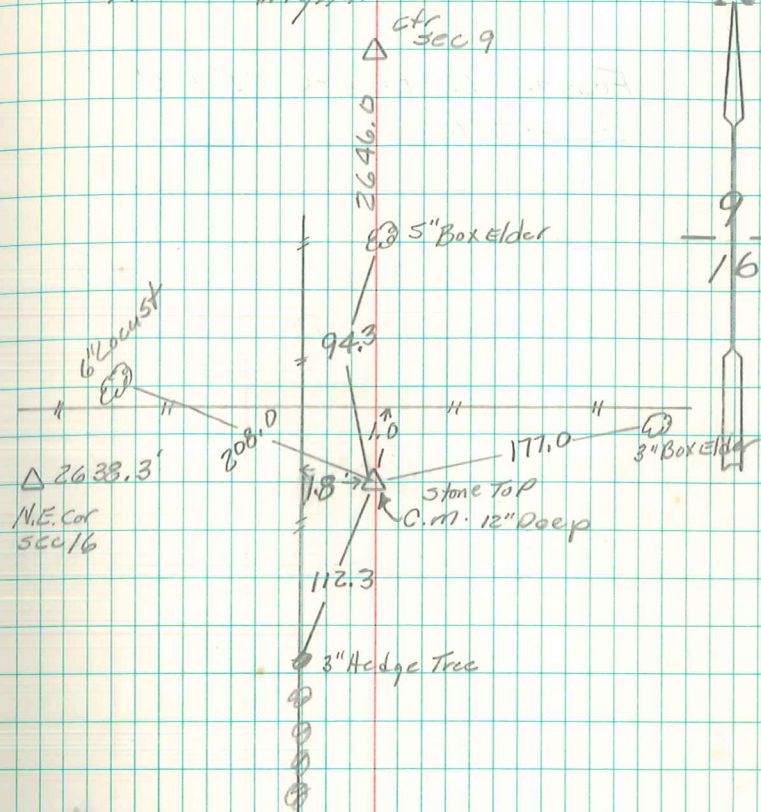 ctr
sec 9
2646.0
5" Box Elder
9
16
94.3
6" Locust
208.0
1.0
177.0
3" Box Elder
2638.3'
N.E. Cor
sec 16
1.8'
Stone Top
C.M. 12" Deep
112.3
3" Hedge Tree